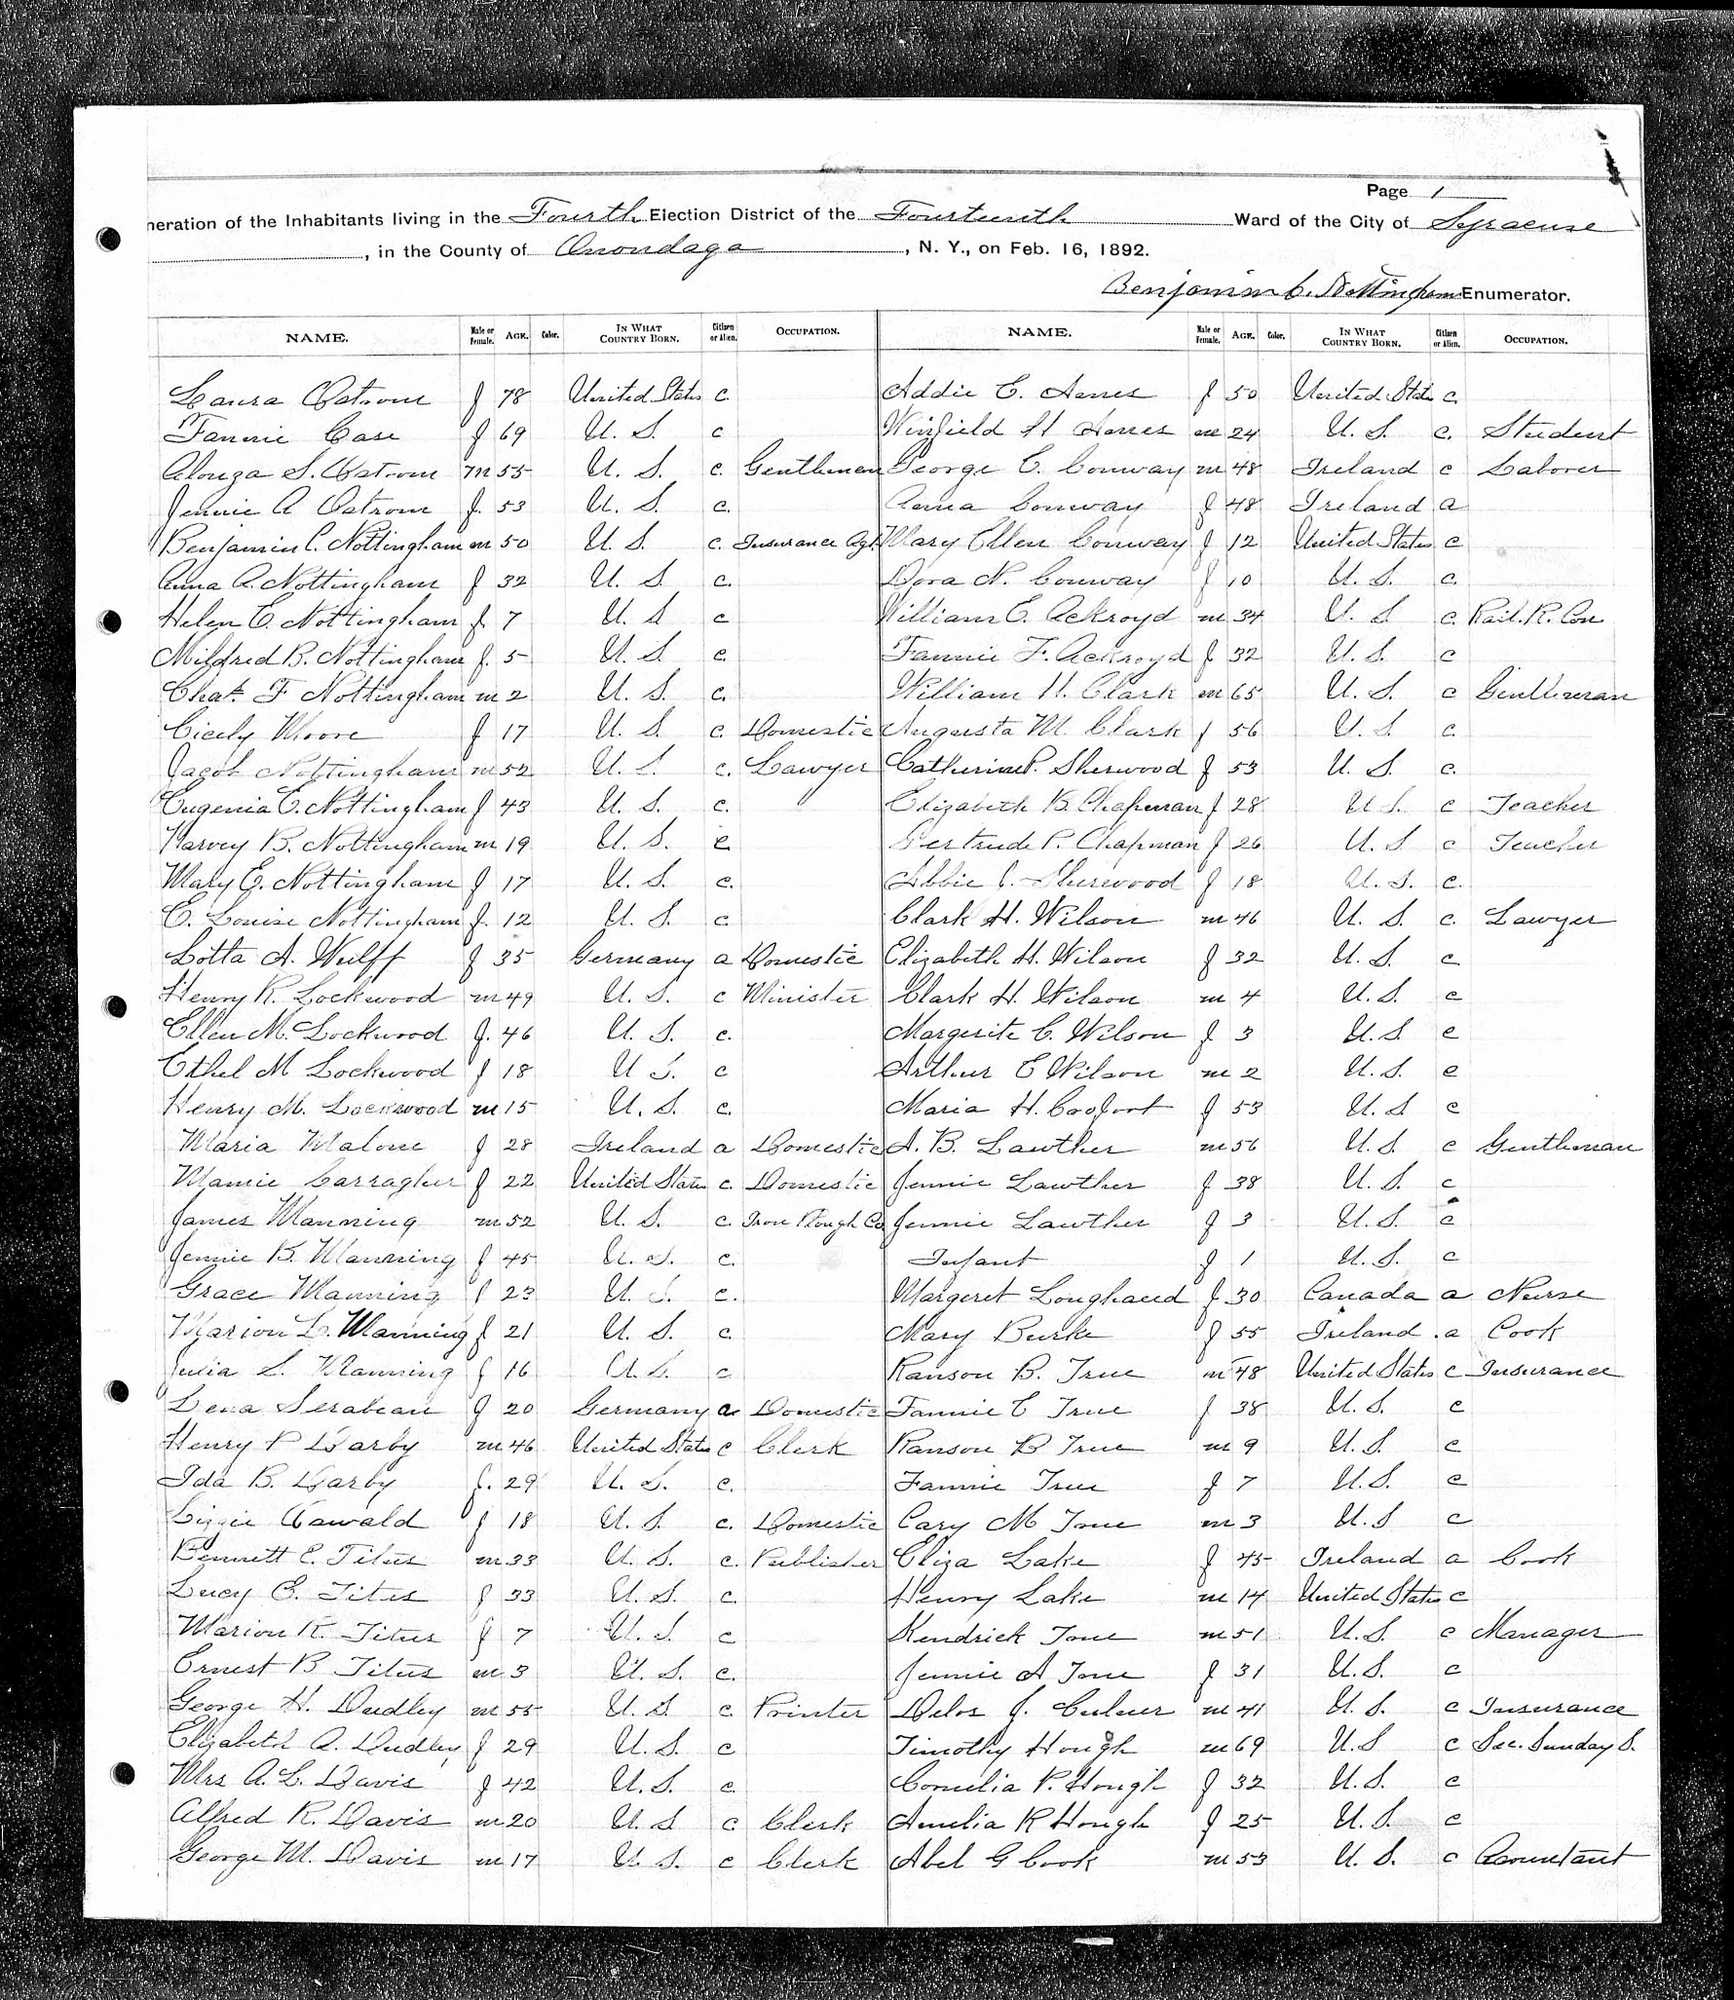 Page 1
neration of the Inhabitants living in the Fourth Election District of the Fourteenth Ward of the City of Syracuse
, in the County of Onondaga, N. Y., on Feb. 16, 1892.
Benjamin C. Nottingham Enumerator.
NAME. Male or Female. AGE. Color. IN WHAT COUNTRY BORN. Citizen or Alien. OCCUPATION.
Laura Ostrom f 78 United States c.
Fannie Case f 69 U. S. c
Alonza S. Ostrom m 55 U. S. c. Gentleman
Jennie A Ostrom f. 53 U. S. c.
Benjamin C. Nottingham m 50 U. S. c. Insurance Agt.
Anna A. Nottingham f 32 U. S. c.
Helen E. Nottingham f. 7 U. S c
Mildred B. Nottingham f. 5 U. S. c.
Chas. F Nottingham m 2 U. S. c.
Cicely Moore f 17 U. S. c. Domestic
Jacob Nottingham m 52 U. S. c. Lawyer
Eugenia E. Nottingham f 43 U. S. c.
Harvey B. Nottingham m 19 U. S. c
Mary E. Nottingham f 17 U. S. c.
E. Louise Nottingham f. 12 U. S. c
Lotta A. Wulff f 35 Germany a Domestic
Henry R. Lockwood m 49 U. S. c Minister
Ellen M. Lockwood f. 46 U. S. c.
Ethel M Lockwood f 18 U S. c
Henry M. Lockwood m 15 U. S. c.
Maria Malone f 28 Ireland a Domestic
Mamie Carragher f 22 United States c. Domestic
James Manning m 52 U. S. c. Iron Plough Co
Jennie B. Manning f 45 U. S. c.
Grace Manning f 23 U. S. c.
Marion L. Manning f 21 U. S. c.
Julia S. Manning f 16 U. S. c
Lena f 20 Germany a. Domestic
Henry P Darby m 46 United States c Clerk
Ida B. Darby f. 29 U. S. c.
Lizzie Oswald f 18 U. S. c. Domestic
Bennett E. Titus m 33 U. S. c. Publisher
Lucy E. Titus f 33 U. S. c.
Marion K. Titus f 7 U. S c
Ernest B Titus m 3 U. S. c.
George H. Dudley m 55 U. S c. Printer
Elizabeth A. Dudley f 29 U. S. c
Mrs A. L. Davis f 42 U. S. c.
Alfred R. Davis m 20 U. S c. Clerk
George M. Davis m 17 U. S. c Clerk
NAME. Male or Female. AGE. Color. IN WHAT COUNTRY BORN. Citizen or Alien. OCCUPATION.
Addie E. f 50 United States c.
Winfield H m 24 U. S. c. Student
George C. Conway m 48 Ireland c Laborer
Anna Conway f 48 Ireland a
Mary Ellen Conway f 12 United States c
Dora N. Conway f 10 U. S. c.
William E. Ackroyd m 34 U. S. c. Rail. R. Con
Fannie F. Ackroyd f 32 U. S. c
William H. Clark m 65 U. S. c Gentleman
Augusta M. Clark f 56 U. S. c.
Catherine P. Sherwood f 53 U. S. c.
Elizabeth B. Chapman f 28 U S. c Teacher
Gertrude P. Chapman f 26 U. S c Teacher
Abbie J. Sherwood f 18 U. S. c.
Clark H. Wilson m 46 U. S. c. Lawyer
Elizabeth H. Wilson f 32 U. S. c
Clark H. Wilson m 4 U. S. c
Margerite C. Wilson f 3 U. S. c
Arthur E Wilson m 2 U. S. c
Maria H. f 53 U. S c
A. B. Lawther m 56 U. S c Gentleman
Jennie Lawther f 38 U. S. c
Jennie Lawther f 3 U. S. c
Infant f 1 U. S. c
Margeret f 30 Canada a Nurse
Mary Burke f 55 Ireland a Cook
Ranson B. True m 48 United States c Insurance
Fannie E True f 38 U. S. c
Ranson B True m 9 U. S. c
Fannie True f 7 U. S. c
Cary M True m 3 U. S c
Eliza Lake f 45 Ireland a Cook
Henry Lake m 14 United States c
Kendrick m 51 U. S c Manager
Jennie A f 31 U. S. c
Delos J. m 41 U. S. c Insurance
Timothy Hough m 69 U. S c Sec. Sunday S.
Cornelia P. Hough f 32 U. S. c
Amelia R Hough f 25 U. S. c
Abel G Cook m 53 U. S. c Acountant